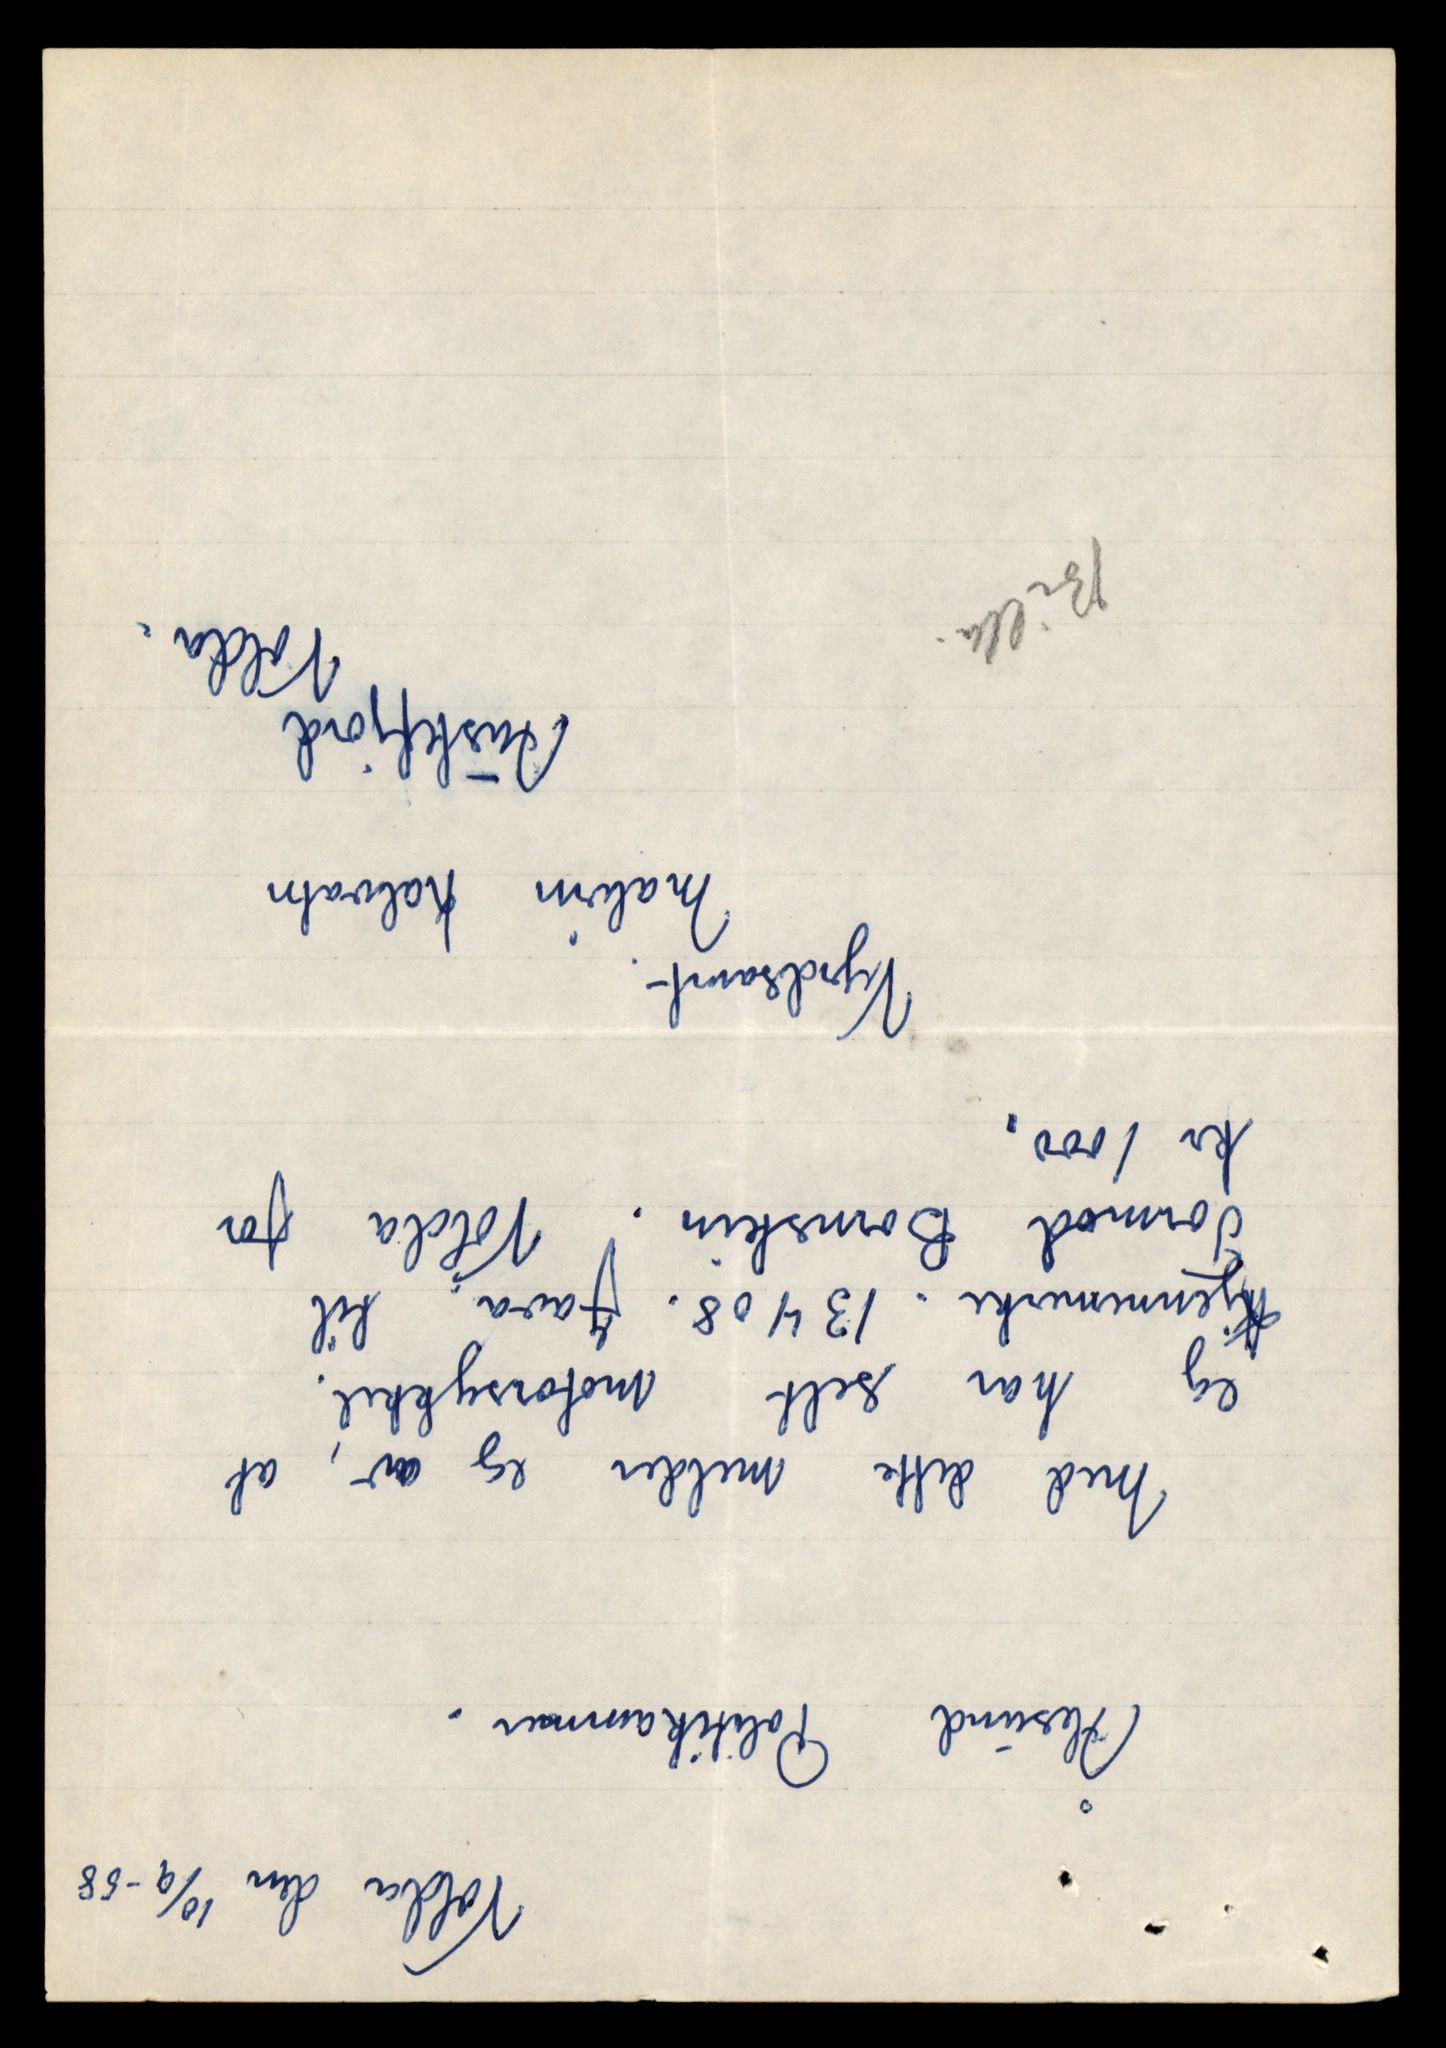 Volda den 10/9-58
Ålesund Politikammer.
Med dette melder eg av, at
eg har selt motorsykkel.
Kjennemerke. 13408. Java. til
Tormod Bornstein. Volda for
kr 1000.
Vyrdsamt.
Malvin Kalvatn
Austefjord
Volda.